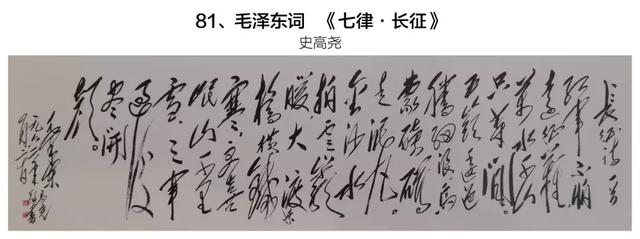 81、毛泽东词 《七律·长征》
史高尧
长征诗一首
红军不怕
远征难
万水千山
只等闲
五岭逶迤
腾细浪乌
蒙磅礴
走泥丸
金沙水
拍云崖
暖大渡
桥横铁索
寒更喜
岷山千里
雪三军
过后
尽开
颜。
毛泽东